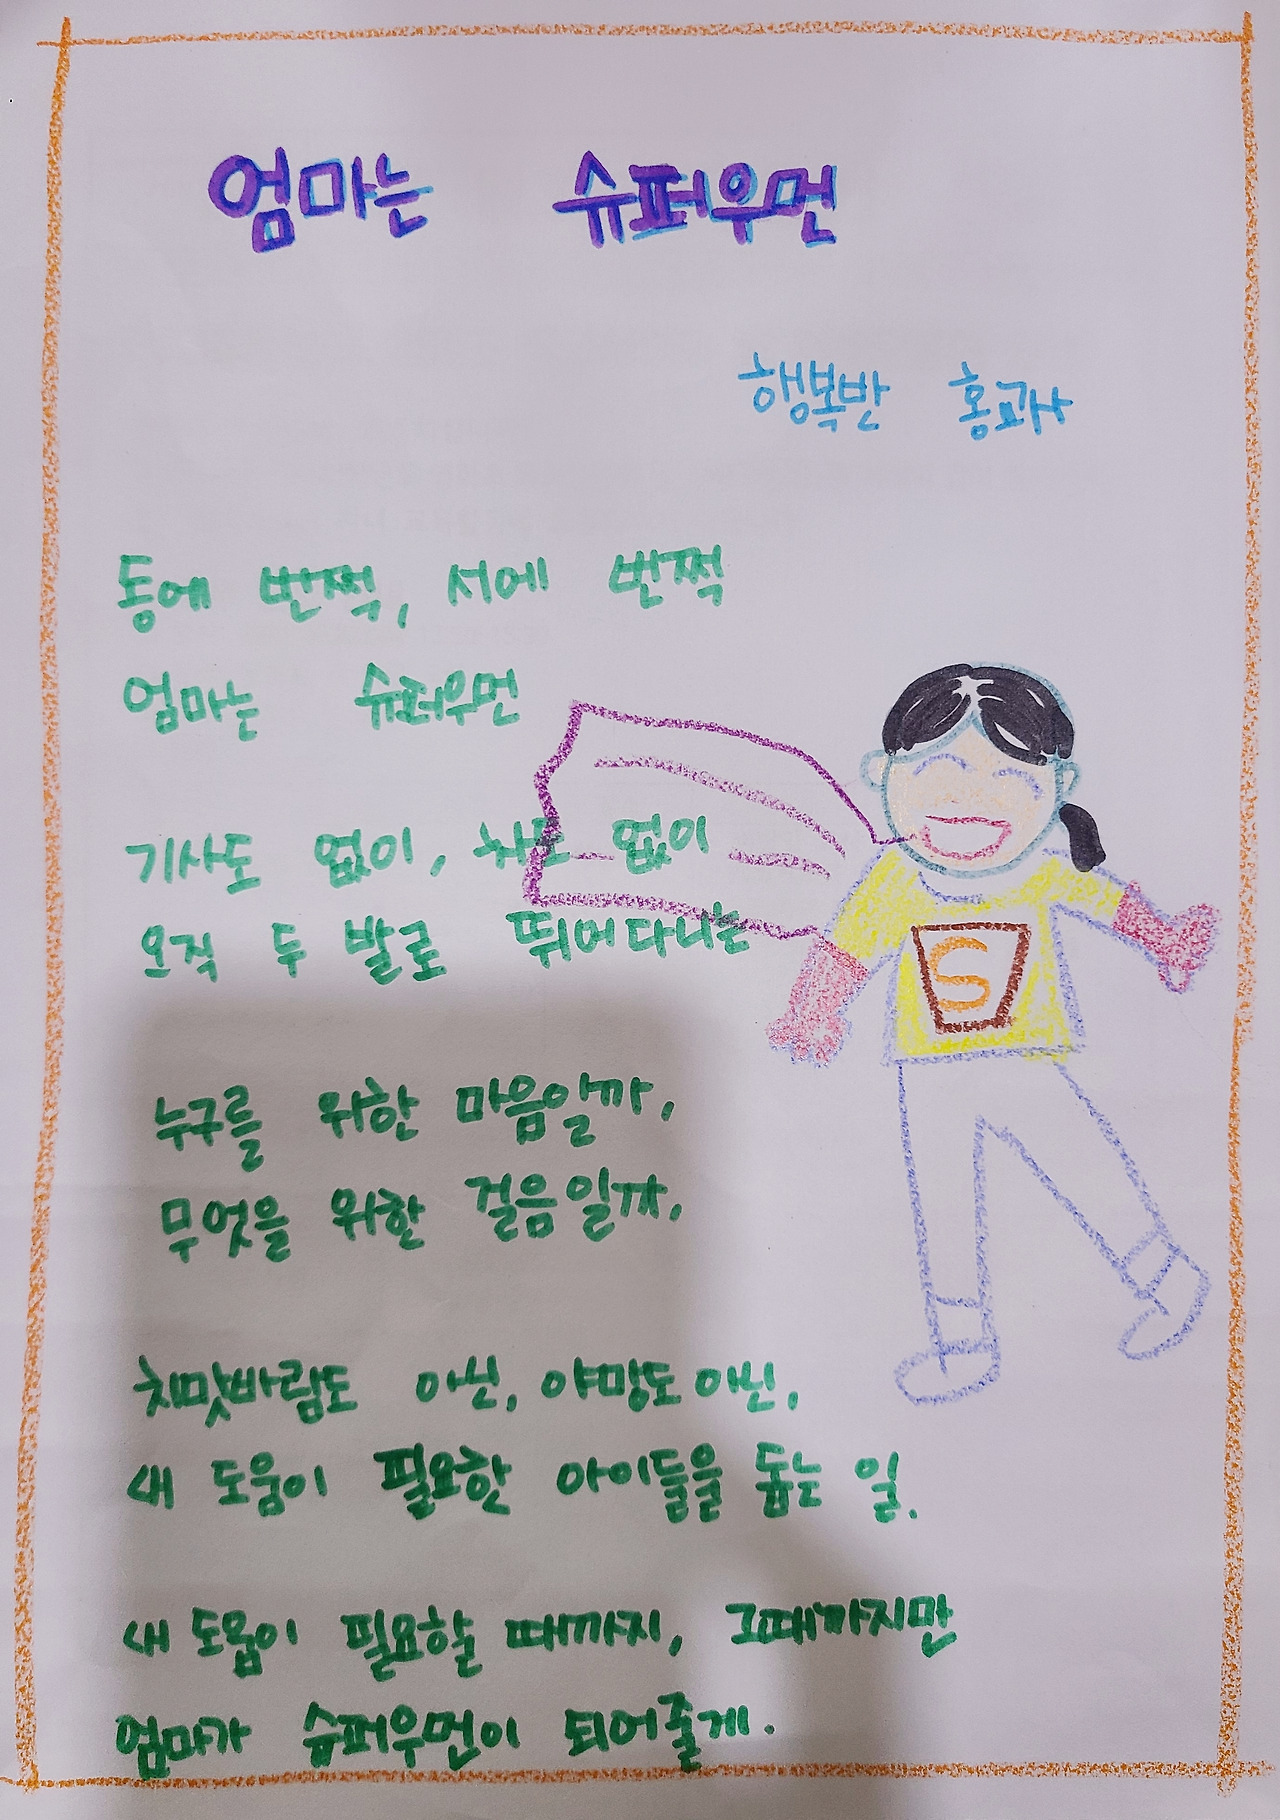 엄마는 슈퍼우먼
행복반 홍교사
동에 번쩍, 서에 번쩍
엄마는 슈퍼우먼
기사도 없이, 차도 없이
오직 두 발로 뛰어다니는
누구를 위한 마음일까,
무엇을 위한 걸음일까,
치맛바람도 아닌, 야망도 아닌,
내 도움이 필요한 아이들을 돕는 일.
내 도움이 필요할 때까지, 그때까지만
엄마가 슈퍼우먼이 되어줄게.
S